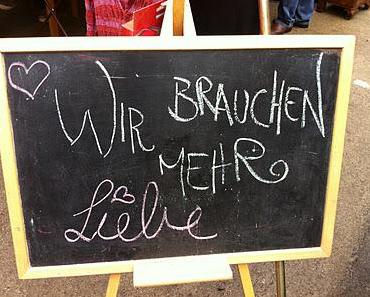 WIR BRAUCHEN
MEHR
Liebe